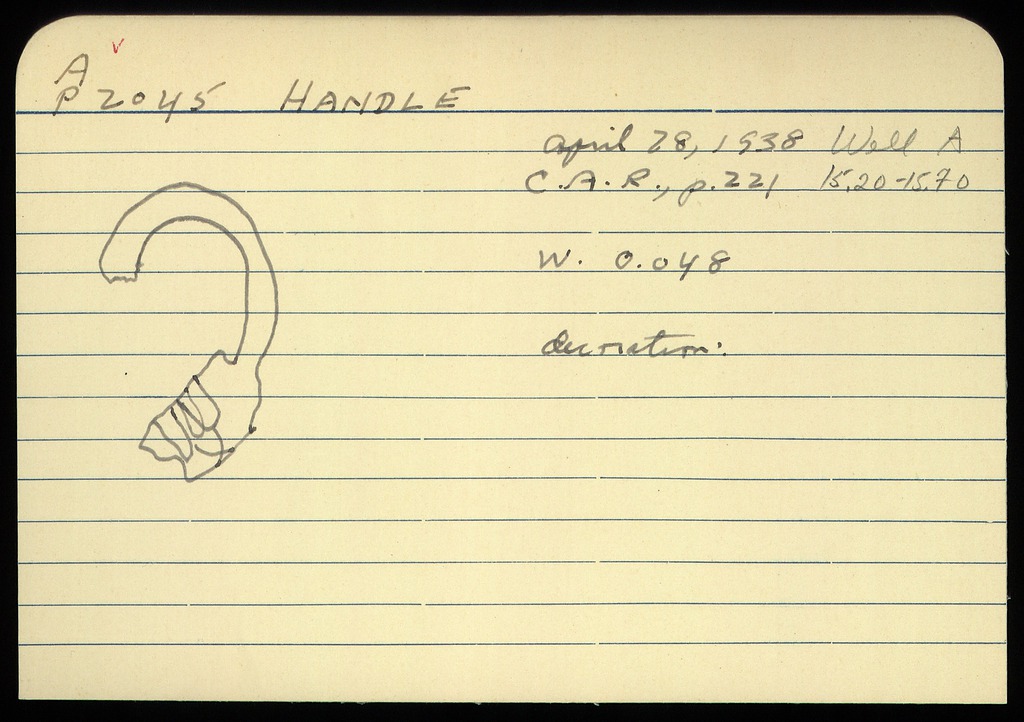 A
P 2045 HANDLE
April 28, 1938 Well A
C.A.R., p.221 15.20-15.70
W. 0.048
decoration: